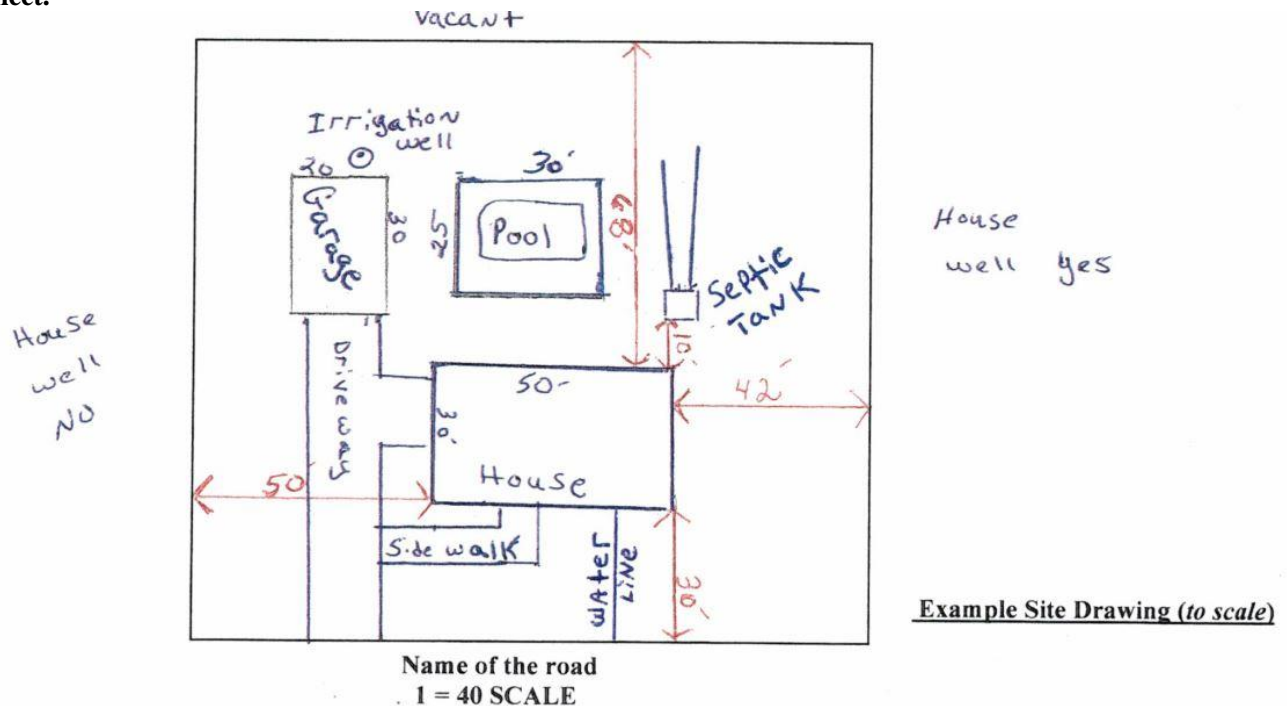 Vacant
Irrigation
well
20
30'
Garage
30
25
Pool
68'
Septic
Tank
House
well yes
House
well
No
Driveway
10'
50-
42'
30'
50'
House
Side walk
Water
Line
30'
Example Site Drawing (to scale)
Name of the road
1 = 40 SCALE